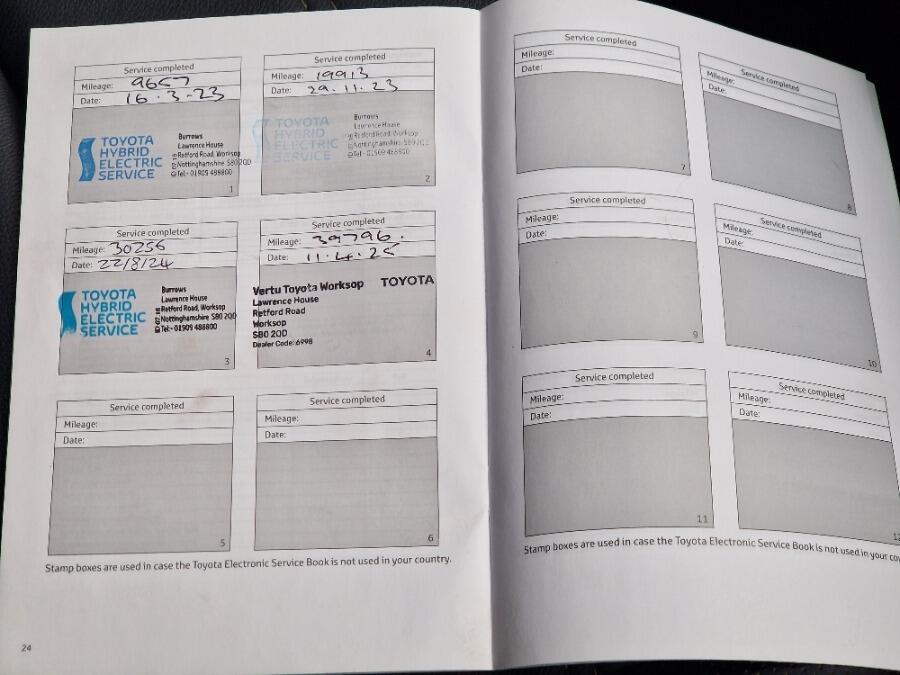 Service completed
Mileage: 9657
Date: 16.3.23
TOYOTA
HYBRID
ELECTRIC
SERVICE
Burrows
Lawrence House
Retford Road, Worksop
Nottinghamshire S80 2QD
Tel:- 01909 488800
1
Service completed
Mileage: 19913
Date: 29.11.23
TOYOTA
HYBRID
ELECTRIC
SERVICE
Burrows
Lawrence House
Retford Road, Worksop
Nottinghamshire S80 2QD
Tel:- 01909 488800
2
Service completed
Mileage: 30256
Date: 22/8/24
TOYOTA
HYBRID
ELECTRIC
SERVICE
Burrows
Lawrence House
Retford Road, Worksop
Nottinghamshire S80 2QD
Tel:- 01909 488800
3
Service completed
Mileage: 39796.
Date: 11.4.25
Vertu Toyota Worksop TOYOTA
Lawrence House
Retford Road
Worksop
S80 2QD
Dealer Code: 6998
4
Service completed
Mileage:
Date:
5
Service completed
Mileage:
Date:
6
Stamp boxes are used in case the Toyota Electronic Service Book is not used in your country.
24
Service completed
Mileage:
Date:
7
Service completed
Mileage:
Date:
8
Service completed
Mileage:
Date:
9
Service completed
Mileage:
Date:
10
Service completed
Mileage:
Date:
11
Service completed
Mileage:
Date:
Stamp boxes are used in case the Toyota Electronic Service Book is not used in your